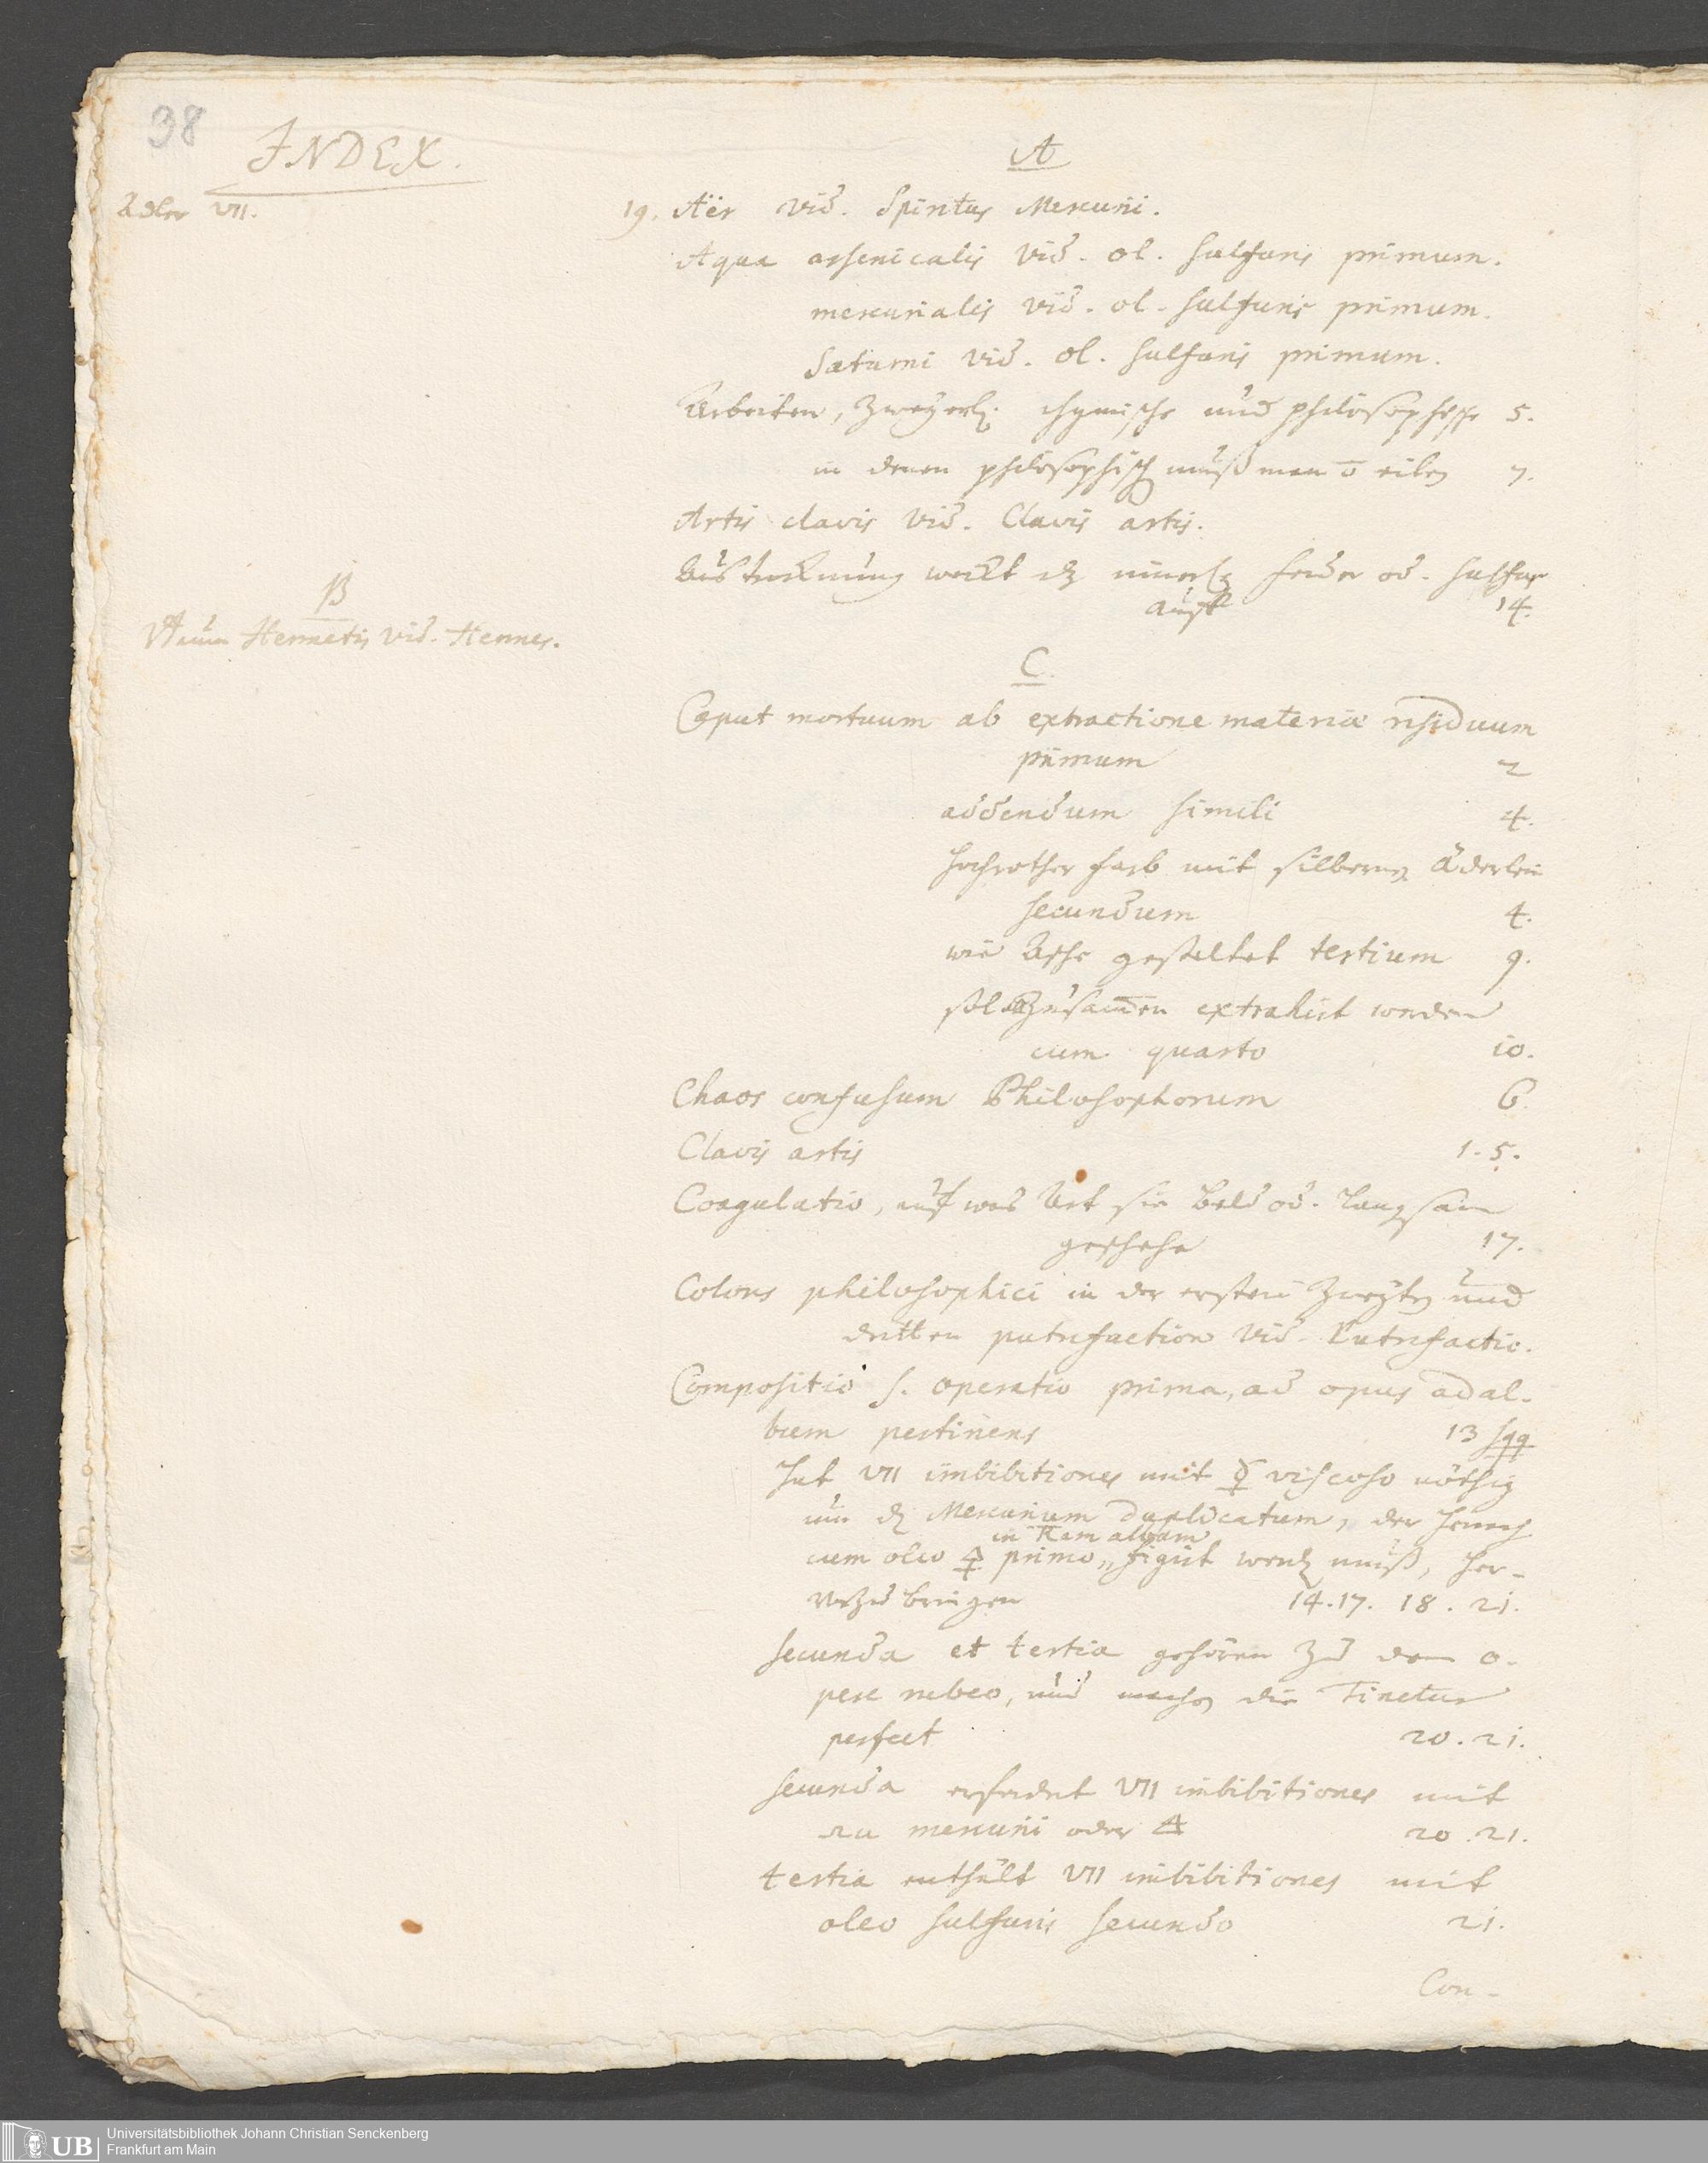 38
INDEX.
A
Adler VII. 19.
Aër vid. Spiritus Mercurii.
Aqua arsenicalis vid. ol. sulfuris primum.
mercurialis vid. ol. sulfuris primum.
Saturni vid. ol. sulfuris primum.
Arbeiten, zweyerley chymische und philosophische 5.
in denen philosophisch muß man õ eilen 7.
Artis clavis vid. Clavis artis.
Austrocknung weckt innerl. feuer od. sulfur
auff 14.
B
Hermetis vid. Hermes.
C.
Caput mortuum ab extractione materiæ residuum
primum 2
addendum simili 4.
hochrother farb mit silbernen Äderlein
secundum 4.
wie Asche gestaltet tertium 9.
soll zusam̄en extrahirt werden
cum quarto 10.
Chaos confusum Philosophorum 6.
Clavis artis 1. 5.
Coagulatio, auf was Art sie bald od. langsam
geschehe 17.
Colores philosophici in der ersten zweyten und
dritten putrefaction vid. Putrefactio.
Compositio s. operatio prima, ad opus ad al-
bum pertinens 13 sqq
hat VII imbibitiones mit ☿ viscoso nöthig
um Mercurium duplicatum, der hernach
in terram albam
cum oleo 🜍 primo,, figirt werden muß, her-
vorzubringen 14. 17. 18. 21.
secunda et tertia gehören zu dem o-
pere rubeo, und machen die Tinctur
perfect 20. 21.
secunda erfordert VII imbibitiones mit
mercurii oder 🜁 20. 21.
tertia enthält VII imbibitiones mit
oleo sulfuris secundo 21.
Con-
UB
Universitätsbibliothek Johann Christian Senckenberg
Frankfurt am Main